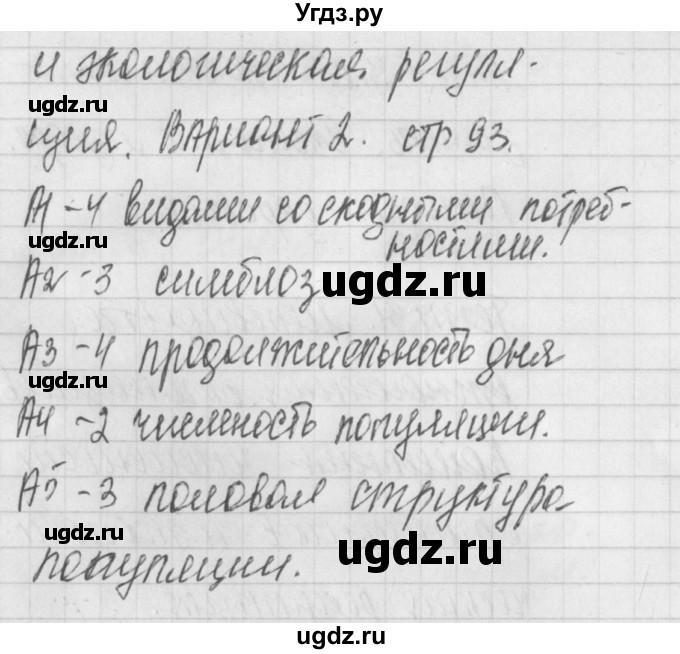 Угдз.ру
и экологическая регуля-
ugdz.ru
ция. Вариант 2. стр 93.
ugdz.ru
А1 - 4 видами со сходными потреб-
ugdz.ru
ностями.
А2 - 3 симбиоз
ugdz.ru
А3 - 4 продолжительность дня
ugdz.ru
А4 - 2 численость популяции.
ugdz.ru
А5 - 3 половая структура
ugdz.ru
ugdz.ru
популяции.
ugdz.ru
ugdz.ru